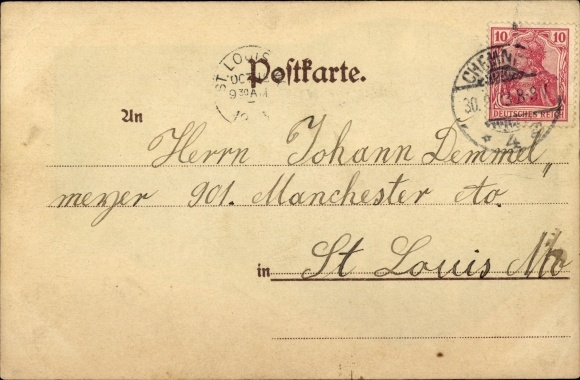 10 10
DEUTSCHES REICH
ST. LOUIS
OCT
9 30 AM
Postkarte.
CHEMN
30. 9.
4
An
Herrn Johann Demmel„
meyer 901. Manchester Av.
in St Louis Mo